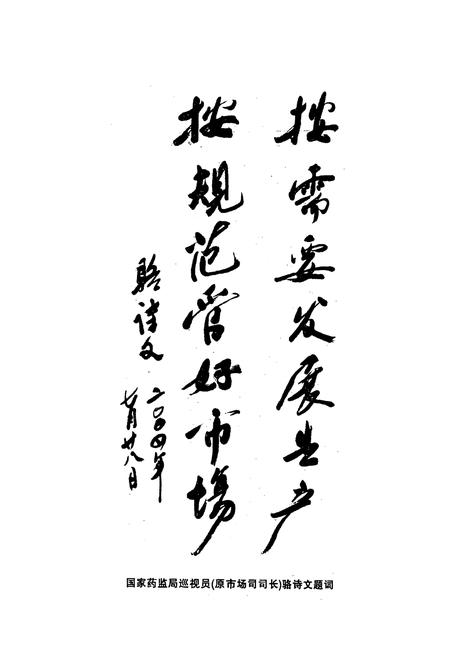 按需要发展生产
按规范管好市場
骆诗文
二〇〇四年
七月廿八日
国家药监局巡视员(原市场司司长)骆诗文题词